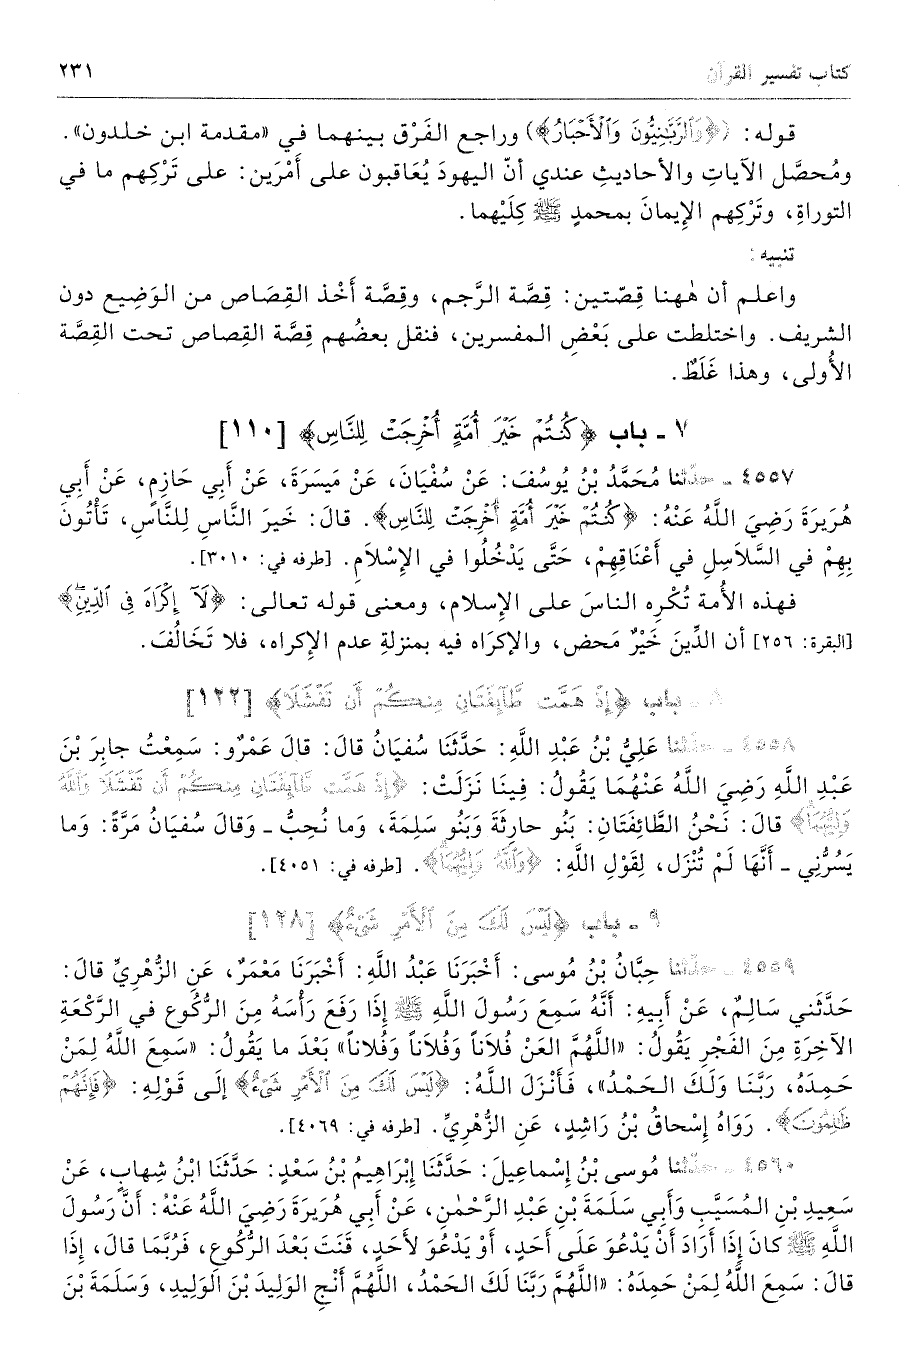 كتاب تفسير القرآن ٢٣١
قوله: (﴿وَٱلرَّبَّٰنِيُّونَ وَٱلْأَحْبَارُ﴾) وراجع الفَرْق بينهما في «مقدمة ابن خلدون».
ومُحصَّل الآياتِ والأحاديثِ عندي أنّ اليهودَ يُعَاقبون على أَمْرَين: على تَرْكِهم ما في
التوراةِ، وتَرْكِهم الإِيمانَ بمحمدٍ ﷺ كِلَيْهما.
تنبيه:
واعلم أن هٰهنا قِصّتين: قِصَّة الرَّجم، وقِصَّة أَخْذ القِصَاص من الوَضِيع دون
الشريف. واختلطت على بَعْضِ المفسرين، فنقل بعضُهم قِصَّة القِصاص تحت القِصَّة
الأُولى، وهذا غَلَطٌ.
٧ - باب ﴿كُنتُمْ خَيْرَ أُمَّةٍ أُخْرِجَتْ لِلنَّاسِ﴾ [١١٠]
٤٥٥٧ - حدّثنا مُحَمَّدُ بْنُ يُوسُفَ: عَنْ سُفْيَانَ، عَنْ مَيسَرَةَ، عَنْ أَبِي حَازِمٍ، عَنْ أَبِي
هُرَيرَةَ رَضِيَ اللَّهُ عَنْهُ: ﴿كُنتُمْ خَيْرَ أُمَّةٍ أُخْرِجَتْ لِلنَّاسِ﴾. قالَ: خَيرَ النَّاسِ لِلنَّاسِ، تَأْتُونَ
بِهِمْ في السَّلاَسِلِ في أَعْنَاقِهِمْ، حَتَّى يَدْخُلُوا في الإِسْلاَمِ. [طرفه في: ٣٠١٠].
فهذه الأُمة تُكْرِه الناسَ على الإِسلام، ومعنى قوله تعالى: ﴿لَآ إِكْرَاهَ فِى ٱلدِّينِۖ﴾
[البقرة: ٢٥٦] أن الدِّينَ خَيْرٌ مَحض، والإكرَاه فيه بمنزلةِ عدم الإِكراه، فلا تَخَالُفَ.
٨ - باب ﴿إِذْ هَمَّت طَّآئِفَتَانِ مِنكُمْ أَن تَفْشَلَا﴾ [١٢٢]
٤٥٥٨ - حدّثنا عَلِيُّ بْنُ عَبْدِ اللَّهِ: حَدَّثَنَا سُفيَانُ قالَ: قالَ عَمْرٌو: سَمِعْتُ جابِرَ بْنَ
عَبْدِ اللَّهِ رَضِيَ اللَّهُ عَنْهُمَا يَقُولُ: فِينَا نَزَلَتْ: ﴿إِذْ هَمَّت طَّآئِفَتَانِ مِنكُمْ أَن تَفْشَلَا وَٱللَّهُ
وَلِيُّهُمَا﴾ قالَ: نَحْنُ الطَّائِفَتَانِ: بَنُو حارِثَةَ وَبَنُو سَلِمَةَ، وَما نُحِبُّ - وَقالَ سُفيَانُ مَرَّةً: وَما
يَسُرُّنِي - أَنَّهَا لَمْ تُنْزَل، لِقَوْلِ اللَّهِ: ﴿وَٱللَّهُ وَلِيُّهُمَا﴾. [طرفه في: ٤٠٥١].
٩ - باب ﴿لَيْسَ لَكَ مِنَ ٱلْأَمْرِ شَىْءٌ﴾ [١٢٨]
٤٥٥٩ - حدّثنا حِبَّانُ بْنُ مُوسى: أَخْبَرَنَا عَبْدُ اللَّهِ: أَخْبَرَنَا مَعْمَرٌ، عَنِ الزُّهْرِيِّ قالَ:
حَدَّثَني سَالِمٌ، عَنْ أَبِيهِ: أَنَّهُ سَمِعَ رَسُولَ اللَّهِ ﷺ إِذَا رَفَعَ رَأْسَهُ مِنَ الرُّكُوع في الرَّكْعَةِ
الآخِرَةِ مِنَ الفَجْرِ يَقُولُ: «اللَّهُمَّ العَنْ فُلاَناً وَفُلاَناً وَفُلاناً» بَعْدَ ما يَقُولُ: «سَمِعَ اللَّهُ لِمَنْ
حَمِدَهُ، رَبَّنَا وَلَكَ الحَمْدُ»، فَأَنْزَلَ اللَّهُ: ﴿لَيْسَ لَكَ مِنَ ٱلْأَمْرِ شَىْءٌ﴾ إِلَى قَوْلِهِ: ﴿فَإِنَّهُمْ
ظَٰلِمُونَ﴾. رَوَاهُ إِسْحاقُ بْنُ رَاشِدٍ، عَنِ الزُّهْرِيِّ. [طرفه في: ٤٠٦٩].
٤٥٦٠ - حدّثنا مُوسى بْنُ إِسْماعِيلَ: حَدَّثَنَا إِبْرَاهِيمُ بْنُ سَعْدٍ: حَدَّثَنَا ابْنُ شِهابٍ، عَنْ
سَعِيدِ بْنِ المُسَيَّبِ وَأَبِي سَلَمَةَ بْنِ عَبْدِ الرَّحْمٰنِ، عَنْ أَبِي هُرَيرَةَ رَضِيَ اللَّهُ عَنْهُ: أَنَّ رَسُولَ
اللَّهِ ﷺ كانَ إِذَا أَرَادَ أَنْ يَدْعُوَ عَلَى أَحَدٍ، أَوْ يَدْعُوَ لأَحَدٍ، قَنَتَ بَعْدَ الرُّكُوعِ، فَرُبَّمَا قالَ، إِذَا
قالَ: سَمِعَ اللَّهُ لِمَنْ حَمِدَهُ: «اللَّهُمَّ رَبَّنَا لَكَ الحَمْدُ، اللَّهُمَّ أَنْجِ الوَلِيدَ بْنَ الوَلِيدِ، وَسَلَمَةَ بْنَ